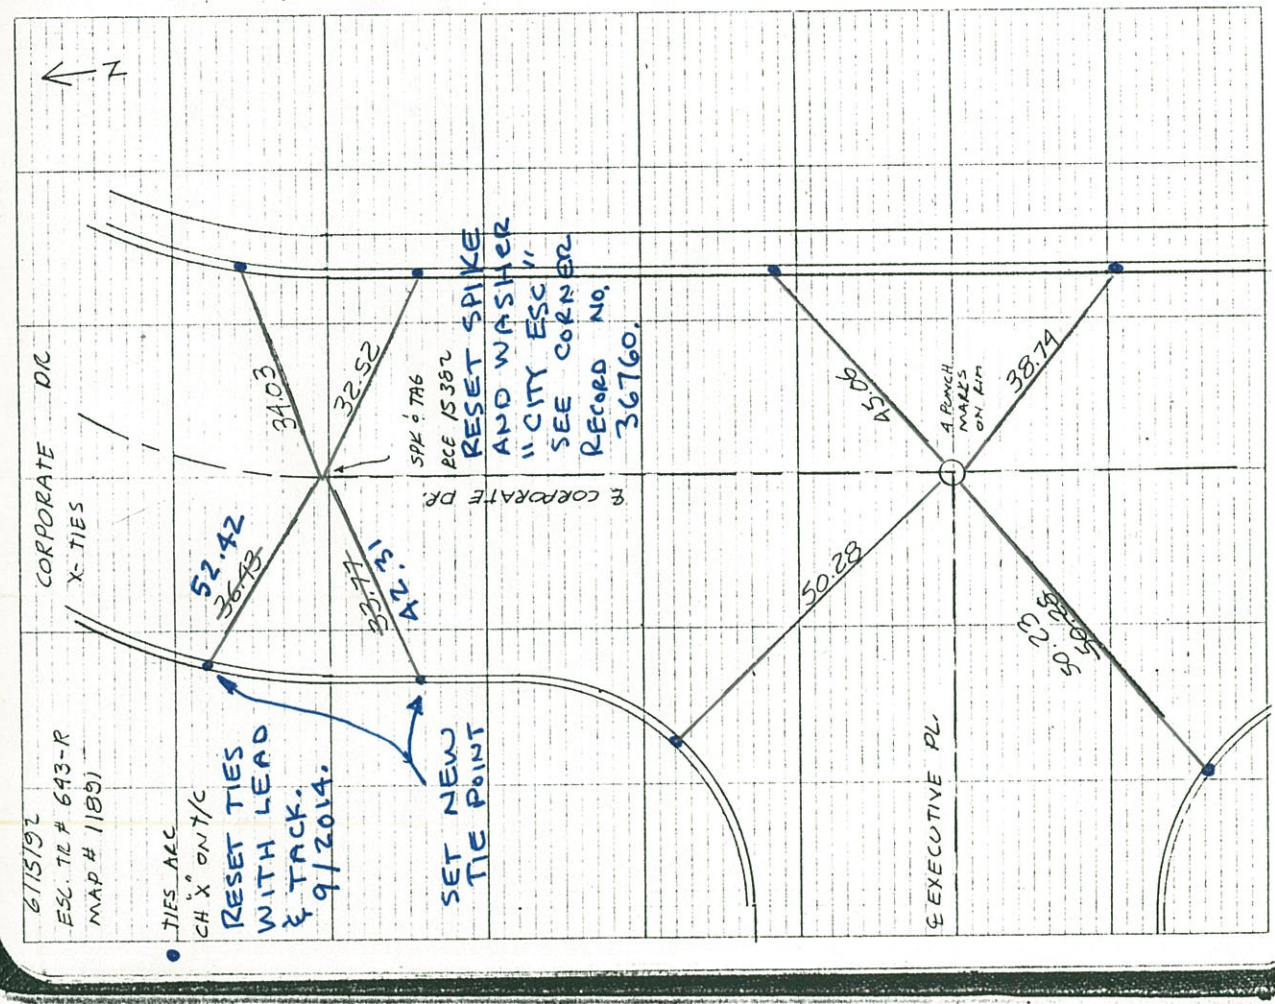 6/15/92
ESC. TR # 643-R
MAP # 11891
CORPORATE DR
X-TIES
N
TIES ARE
CH "X" ON T/C
RESET TIES
WITH LEAD
& TACK.
9/2014.
SET NEW
TIE POINT
52.42
36.43
34.03
33.77
42.31
32.52
SPK & TAG
RCE 15382
RESET SPIKE
AND WASHER
"CITY ESC"
SEE CORNER
RECORD NO.
36760.
℄ CORPORATE DR.
50.28
45.06
4 PUNCH
MARKS
ON RIM
38.74
50.23
50.28
℄ EXECUTIVE PL.